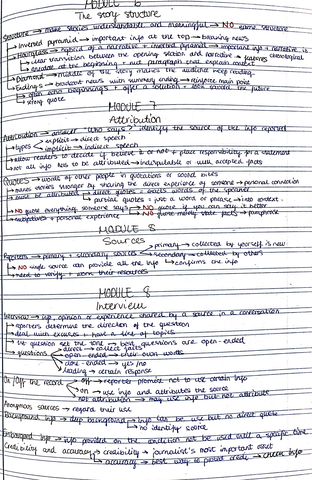 MODULE 6
The story structure
Structure → make stories understandable and meaningful → NO same structure
Inverted pyramid → important info at the top → breaking news
Hourglass → hybrid of a narrative + inverted pyramid → important info + narrative is
clear transition between the opening section and narrative → chronological
beginning + nut paragraph that explain context
Diamond → middle of the story makes the audience keep reading
Endings → broadcast news with summary ending → reiterate main point
offer a solution + look toward the future
strong quote
MODULE 7
Attribution
Attribution → answer "Who says?" identify the source of the info reported
types explicit → direct speech
implicit → indirect speech
allow readers to decide if believe it or not + place responsibility for a statement
not all info has to be attributed → indisputable or well accepted facts
Quotes → words of other people in quotations or sound bites
makes stories stronger by sharing the direct experience of someone → personal connection
must be attributed direct quotes → exact words of the speaker
partial quotes → just a word or phrase → into context
NO quote everything someone says → NO quote if you can say it better
subjectives + personal experience → NO quote merely state facts → paraphrase
MODULE 8
Sources
Reporters → primary + secondary sources primary → collected by yourself is new
secondary → collected by others
NO single source can provide all the info → confirms the info
need to verify + their resources
MODULE 8
Interview
Interview → info, opinion or experience shared by a source in a conversation
reporters determine the direction of the question
deal with excuses + have a list of topics
the question set the tone → best questions are open-ended
questions direct → collect facts
open-ended → their own words
close-ended → yes / no
leading → certain response
On / Off the record off → reporter promise not to use certain info
on → use info and attributes the source
not attribution → may use info but not attribute
Anonymous sources → regard their use
Background info → deep background → info can be use but no direct quote
no identify source
Embargoed info → info provided on the condition not be used until a specific time
Credibility and accuracy → credibility → journalist's most important asset
accuracy → best way to credit → check info